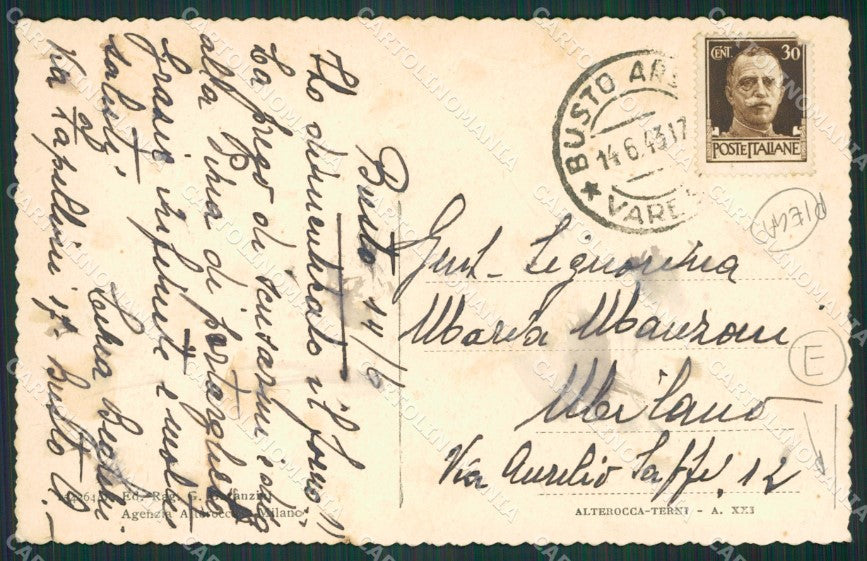 Busto 14/6
Ho dimenticato il
La prego di scusarmi e
alla Bina di portarglielo
Grazie infinite e molti
saluti
Via Papellini 17 Busto A.
BUSTO AR
14.6.43 17
VARE
CENT. 30
POSTE ITALIANE
PIEGA
Gent. Signorina
Maria Manzoni
Milano
Via Aurelio Saffi, 12
E
Ed. Rag. G.
Agenzia Alterocca - Milano
ALTEROCCA-TERNI - A. XXI
CARTOLINOMANIA